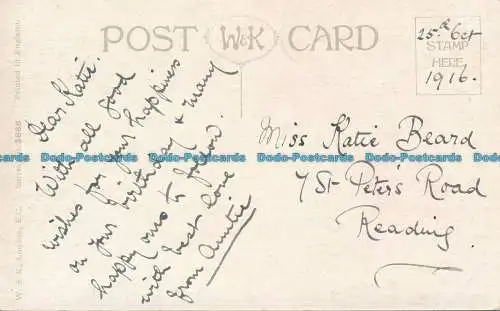 POST W&K CARD
25th Oct
STAMP
HERE
1916.
Dear Katie.
With all good
wishes for your happiness
on your birthday & many
happy ones to follow.
with best love
from Auntie
Miss Katie Beard
7 St Peter's Road
Reading.
Dodo-Postcards Dodo-Postcards Dodo-Postcards Dodo-Postcards Dodo-Postcards
W. & K. London, E.C.
Printed in England.